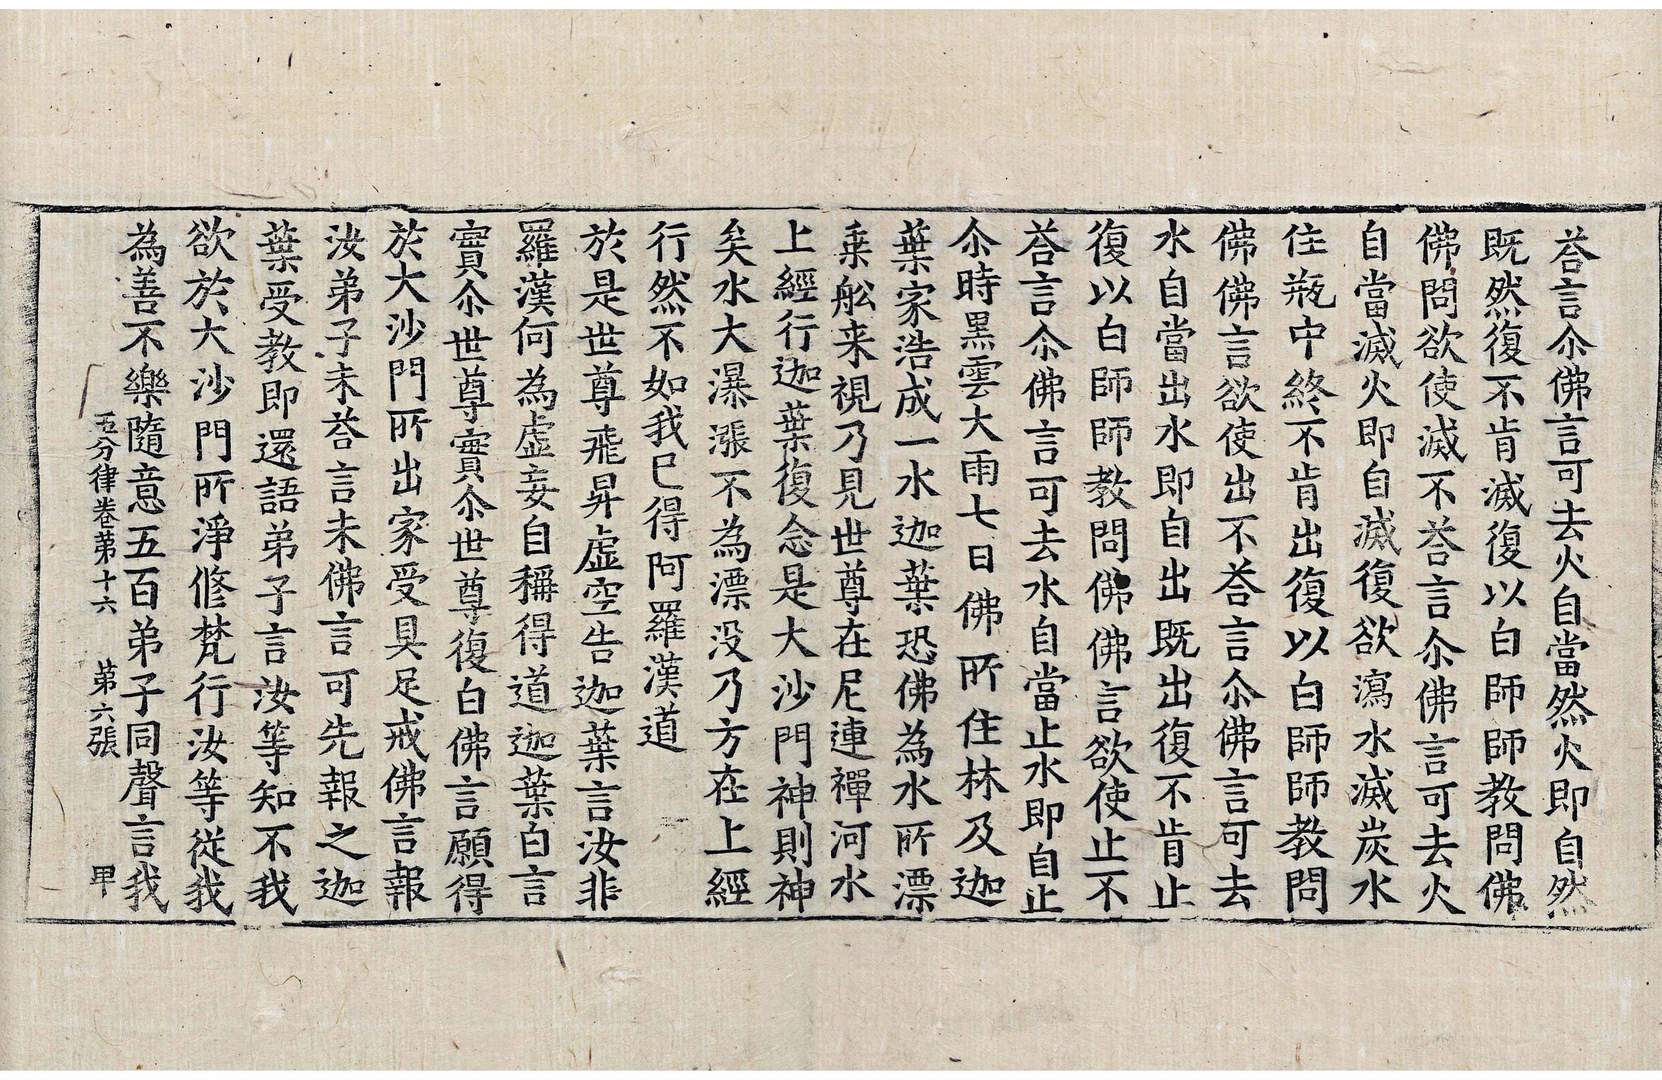 荅言尒佛言可去火自當然火即自然
既然復不肯滅復以白師師教問佛
佛問欲使滅不荅言尒佛言可去火
自當滅火即自滅復欲瀉水滅炭水
住瓶中終不肯出復以白師師教問
佛佛言欲使出不荅言尒佛言可去
水自當出水即自出既出復不肯止
復以白師師教問佛佛言欲使止不
荅言尒佛言可去水自當止水即自止
尒時黑雲大雨七日佛所住林及迦
葉家浩成一水迦葉恐佛為水所漂
乗舩来視乃見世尊在尼連禪河水
上經行迦葉復念是大沙門神則神
矣水大瀑漲不為漂没乃方在上經
行然不如我已得阿羅漢道
於是世尊飛昇虛空告迦葉言汝非
羅漢何為虛妄自稱得道迦葉白言
實尒世尊實尒世尊復白佛言願得
於大沙門所出家受具足戒佛言報
汝弟子未荅言未佛言可先報之迦
葉受教即還語弟子言汝等知不我
欲於大沙門所淨修梵行汝等從我
為善不樂隨意五百弟子同聲言我
五分律卷苐十六 苐六張 甲